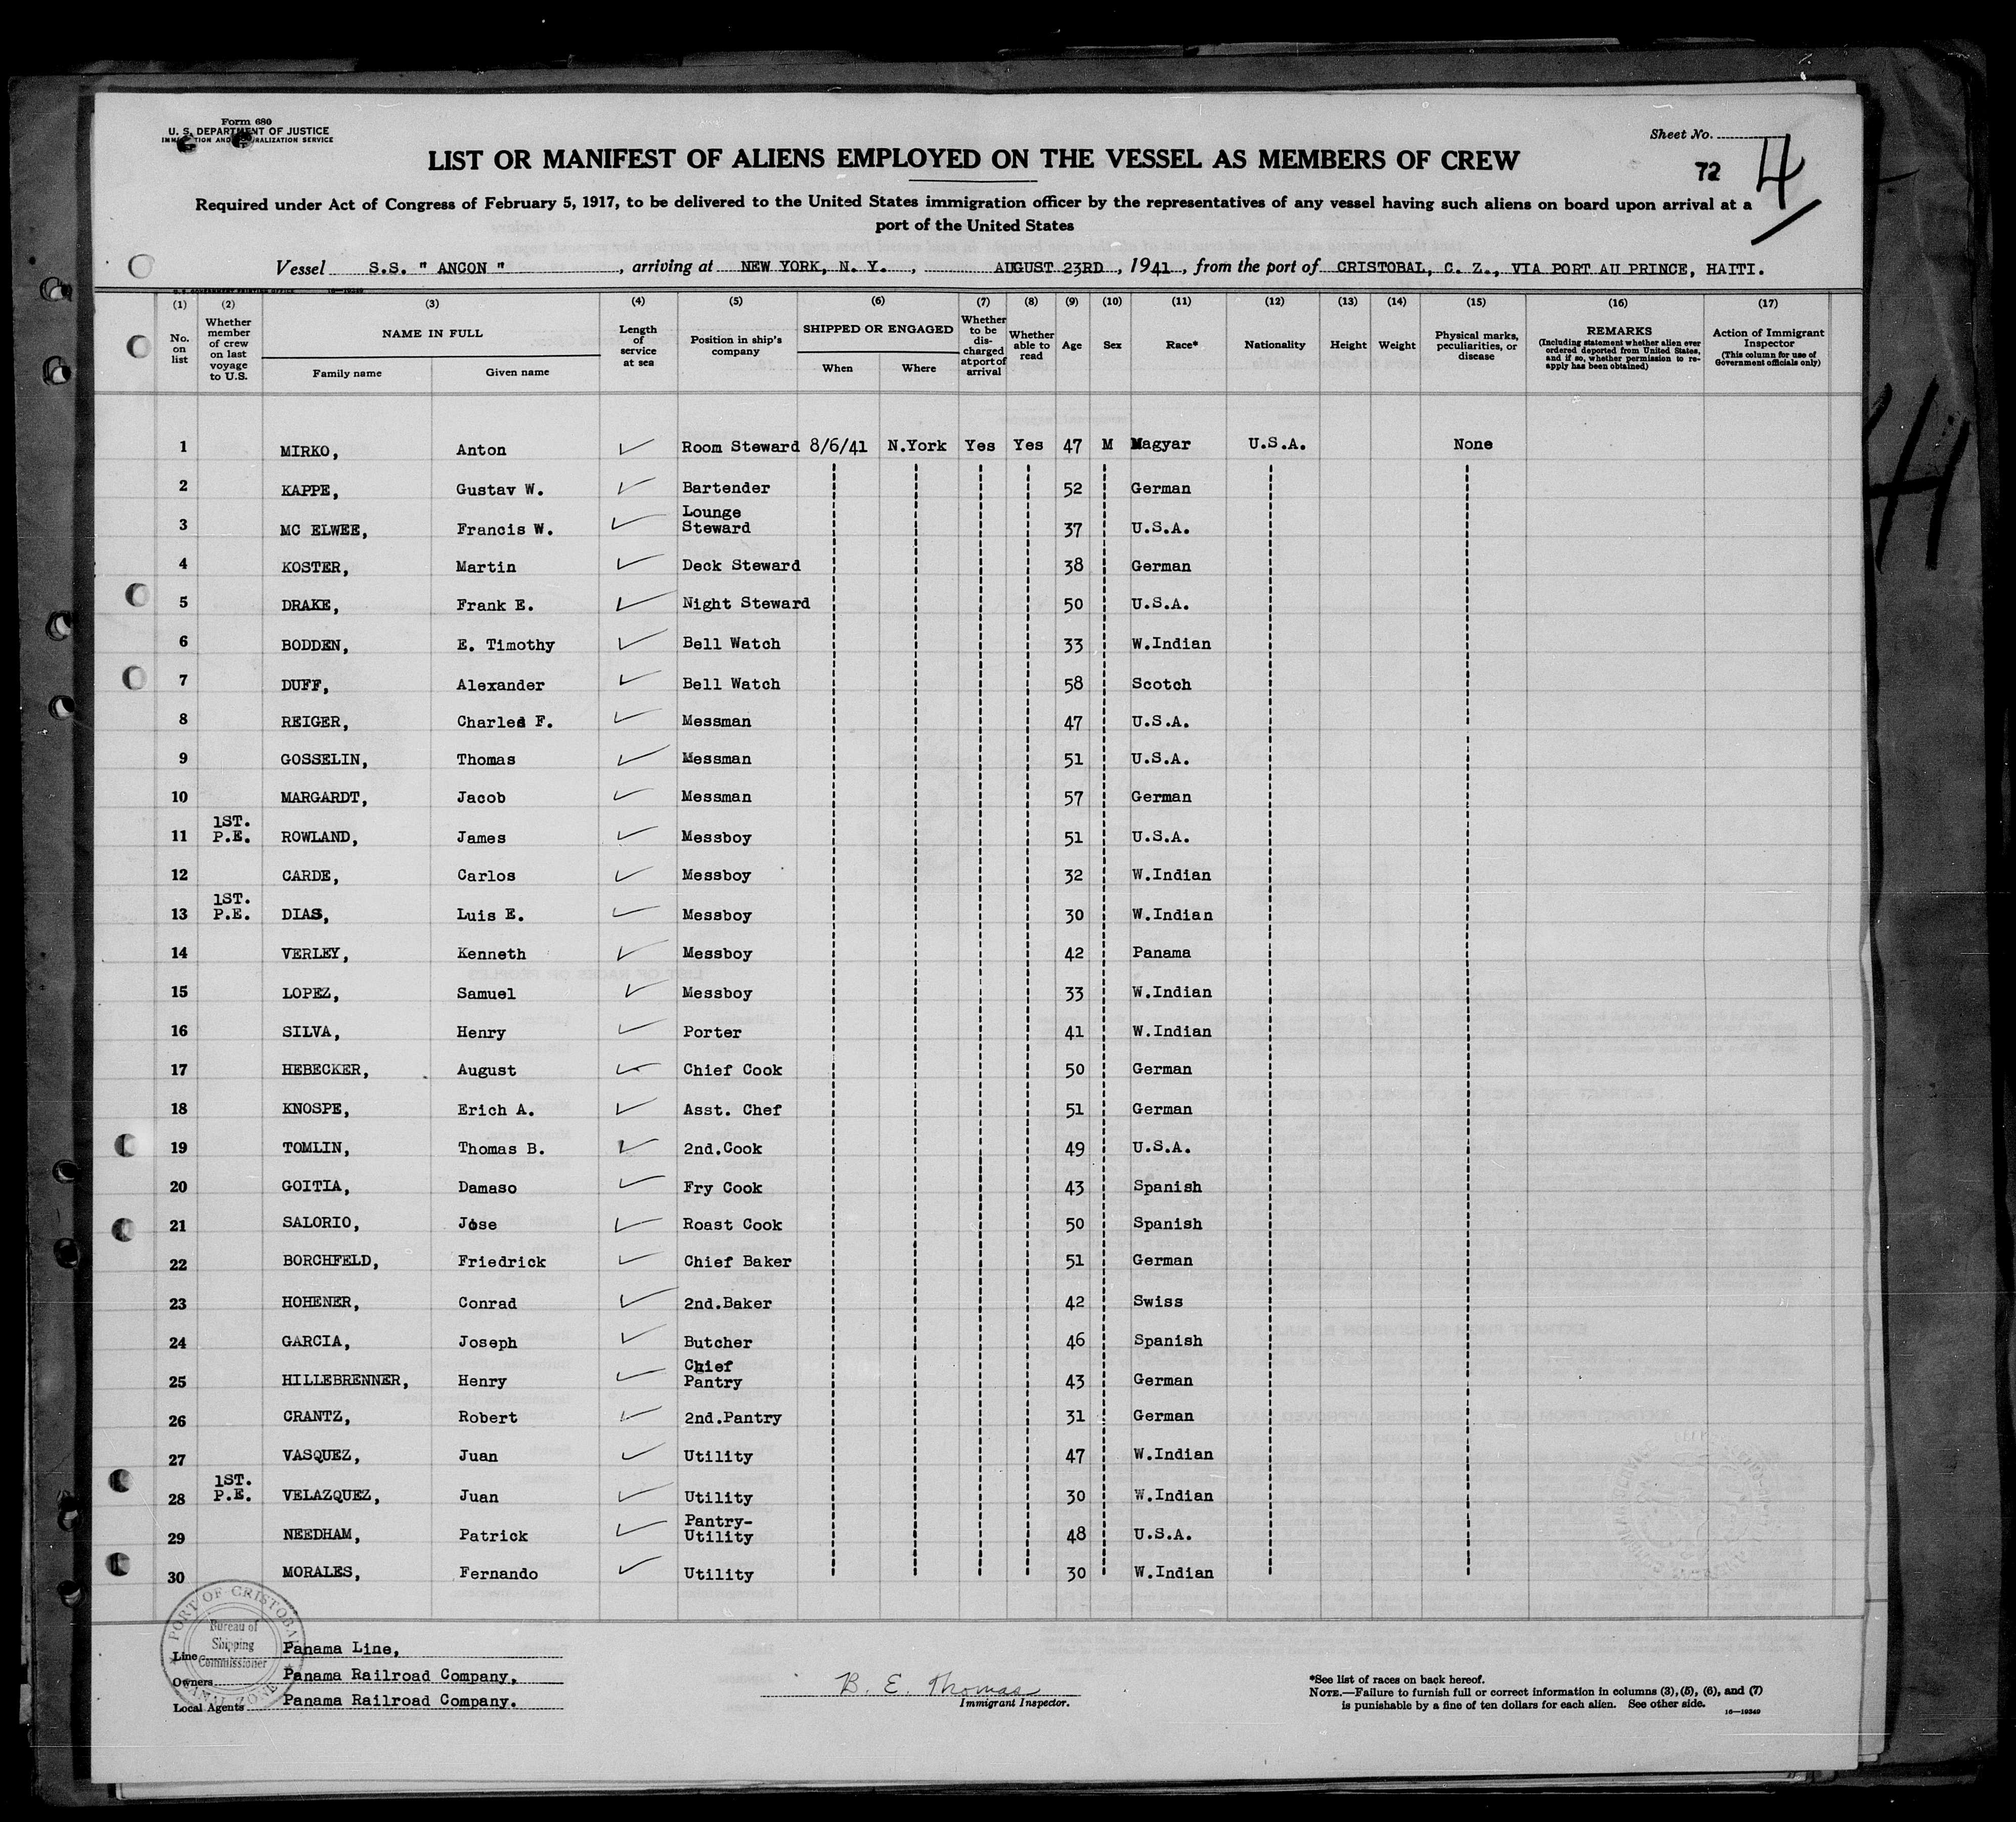 Form 680
U. S. DEPARTMENT OF JUSTICE
IMMIGRATION AND NATURALIZATION SERVICE
Sheet No.
LIST OR MANIFEST OF ALIENS EMPLOYED ON THE VESSEL AS MEMBERS OF CREW
72 4
Required under Act of Congress of February 5, 1917, to be delivered to the United States immigration officer by the representatives of any vessel having such aliens on board upon arrival at a
port of the United States
Vessel S.S. " ANCON " , arriving at NEW YORK, N. Y. , AUGUST 23RD , 1941 , from the port of CRISTOBAL, C. Z., VIA PORT AU PRINCE, HAITI.
(1) (2) (3) (4) (5) (6) (7) (8) (9) (10) (11) (12) (13) (14) (15) (16) (17)
No. on list
Whether member of crew on last voyage to U.S.
NAME IN FULL
Family name Given name
Length of service at sea
Position in ship's company
SHIPPED OR ENGAGED
When Where
Whether to be discharged at port of arrival
Whether able to read
Age
Sex
Race*
Nationality
Height
Weight
Physical marks, peculiarities, or disease
REMARKS
(Including statement whether alien ever ordered deported from United States, and if so, whether permission to reapply has been obtained)
Action of Immigrant Inspector
(This column for use of Government officials only)
1 MIRKO, Anton ✓ Room Steward 8/6/41 N.York Yes Yes 47 M Magyar U.S.A. None
2 KAPPE, Gustav W. ✓ Bartender 52 German
3 MC ELWEE, Francis W. ✓ Lounge Steward 37 U.S.A.
4 KOSTER, Martin ✓ Deck Steward 38 German
5 DRAKE, Frank E. ✓ Night Steward 50 U.S.A.
6 BODDEN, E. Timothy ✓ Bell Watch 33 W.Indian
7 DUFF, Alexander ✓ Bell Watch 58 Scotch
8 REIGER, Charles F. ✓ Messman 47 U.S.A.
9 GOSSELIN, Thomas ✓ Messman 51 U.S.A.
10 MARGARDT, Jacob ✓ Messman 57 German
11 1ST. P.E. ROWLAND, James ✓ Messboy 51 U.S.A.
12 CARDE, Carlos ✓ Messboy 32 W.Indian
13 1ST. P.E. DIAS, Luis E. ✓ Messboy 30 W.Indian
14 VERLEY, Kenneth ✓ Messboy 42 Panama
15 LOPEZ, Samuel ✓ Messboy 33 W.Indian
16 SILVA, Henry ✓ Porter 41 W.Indian
17 HEBECKER, August ✓ Chief Cook 50 German
18 KNOSPE, Erich A. ✓ Asst. Chef 51 German
19 TOMLIN, Thomas B. ✓ 2nd.Cook 49 U.S.A.
20 GOITIA, Damaso ✓ Fry Cook 43 Spanish
21 SALORIO, Jose ✓ Roast Cook 50 Spanish
22 BORCHFELD, Friedrick ✓ Chief Baker 51 German
23 HOHENER, Conrad ✓ 2nd.Baker 42 Swiss
24 GARCIA, Joseph ✓ Butcher 46 Spanish
25 HILLEBRENNER, Henry ✓ Chief Pantry 43 German
26 CRANTZ, Robert ✓ 2nd.Pantry 31 German
27 VASQUEZ, Juan ✓ Utility 47 W.Indian
28 1ST. P.E. VELAZQUEZ, Juan ✓ Utility 30 W.Indian
29 NEEDHAM, Patrick ✓ Pantry-Utility 48 U.S.A.
30 MORALES, Fernando ✓ Utility 30 W.Indian
PORT OF CRISTOBAL
Bureau of Shipping Commissioner
CANAL ZONE
Line Panama Line,
Owners Panama Railroad Company,
Local Agents Panama Railroad Company.
B. E. Thomas
Immigrant Inspector.
*See list of races on back hereof.
NOTE.—Failure to furnish full or correct information in columns (3), (5), (6), and (7)
is punishable by a fine of ten dollars for each alien. See other side.
16—19349